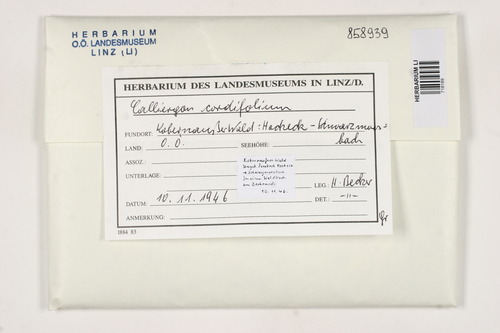 HERBARIUM
O.Ö. LANDESMUSEUM
LINZ (LI)
858939
HERBARIUM LI
HERBARIUM DES LANDESMUSEUMS IN LINZ/D.
Calliergon cordifolium
FUNDORT: Kobernausserwald: Hocheck - Schwarzmoos=
bach
LAND: O.Ö. SEEHÖHE:
ASSOZ.
UNTERLAGE:
Kobernausser Wald
12.11.46.
LEG: H. Becker
DATUM: 10.11.1946 DET.: -"-
ANMERKUNG:
I884 83